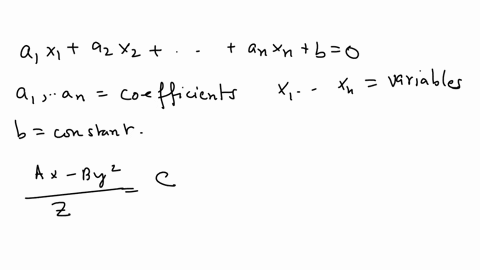 a₁x₁ + a₂x₂ + . . . + aₙxₙ + b = 0
a₁, .. aₙ = coefficients x₁ .. xₙ = variables
b = constant.
(Ax - By²) / Z = C